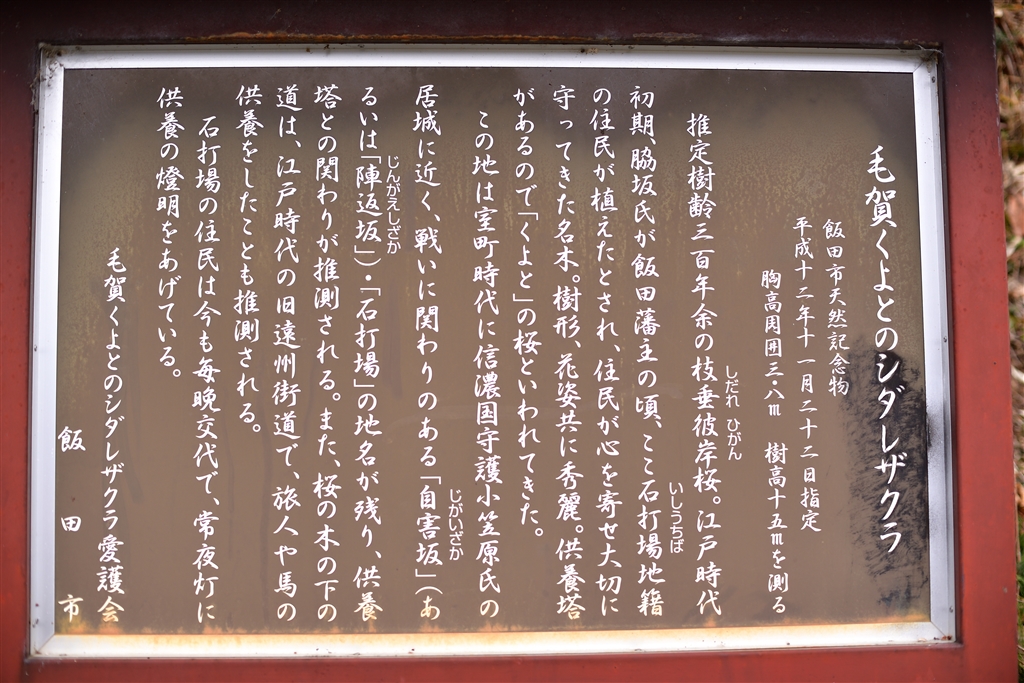 毛賀くよとのシダレザクラ
飯田市天然記念物
平成十二年十一月二十二日指定
胸高周囲三・八m 樹高十五mを測る
推定樹齢三百年余の枝垂彼岸桜。江戸時代
しだれ ひがん
初期、脇坂氏が飯田藩主の頃、ここ石打場地籍
いしうちば
の住民が植えたとされ、住民が心を寄せ大切に
守ってきた名木。樹形、花姿共に秀麗。供養塔
があるので「くよと」の桜といわれてきた。
この地は室町時代に信濃国守護小笠原氏の
居城に近く、戦いに関わりのある「自害坂」(あ
じがいざか
るいは「陣返坂」)・「石打場」の地名が残り、供養
じんがえしざか
塔との関わりが推測される。また、桜の木の下の
道は、江戸時代の旧遠州街道で、旅人や馬の
供養をしたことも推測される。
石打場の住民は今も毎晩交代で、常夜灯に
供養の燈明をあげている。
毛賀くよとのシダレザクラ愛護会
飯田市